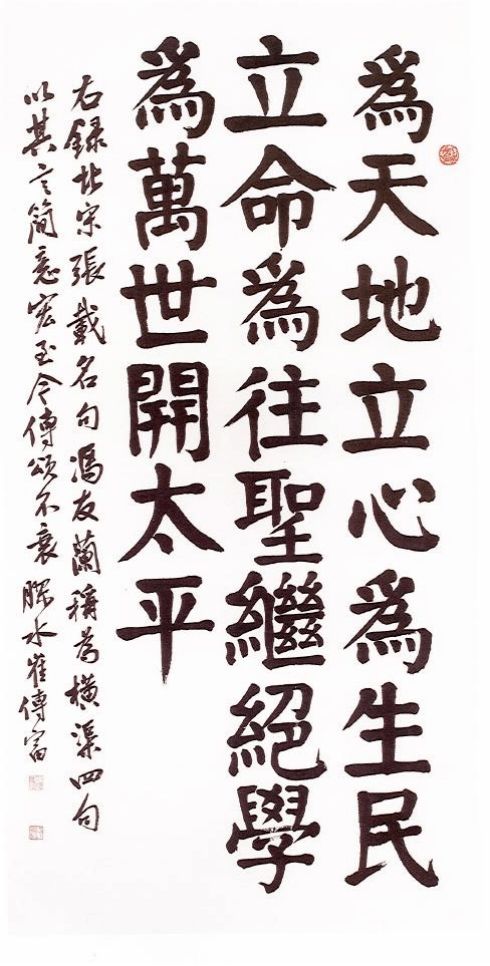 為天地立心為生民
立命為往聖繼絕學
為萬世開太平
右録北宋張載名句馮友蘭稱為橫渠四句
以其言簡意宏至今傳頌不衰膠水崔傳富